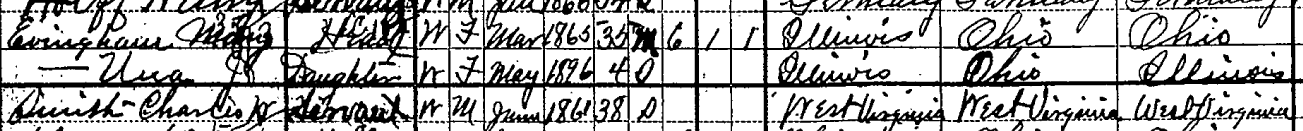 Servant W M Jan 1866 34 S Germany Germany Germany
Evingham Mary Head W F Mar 1865 35 M 6 1 1 Illinois Ohio Ohio
— Una Daughter W F May 1896 4 S Illinois Ohio Illinois
Smith Charles W Servant W M June 1861 38 S West Virginia West Virginia West Virginia